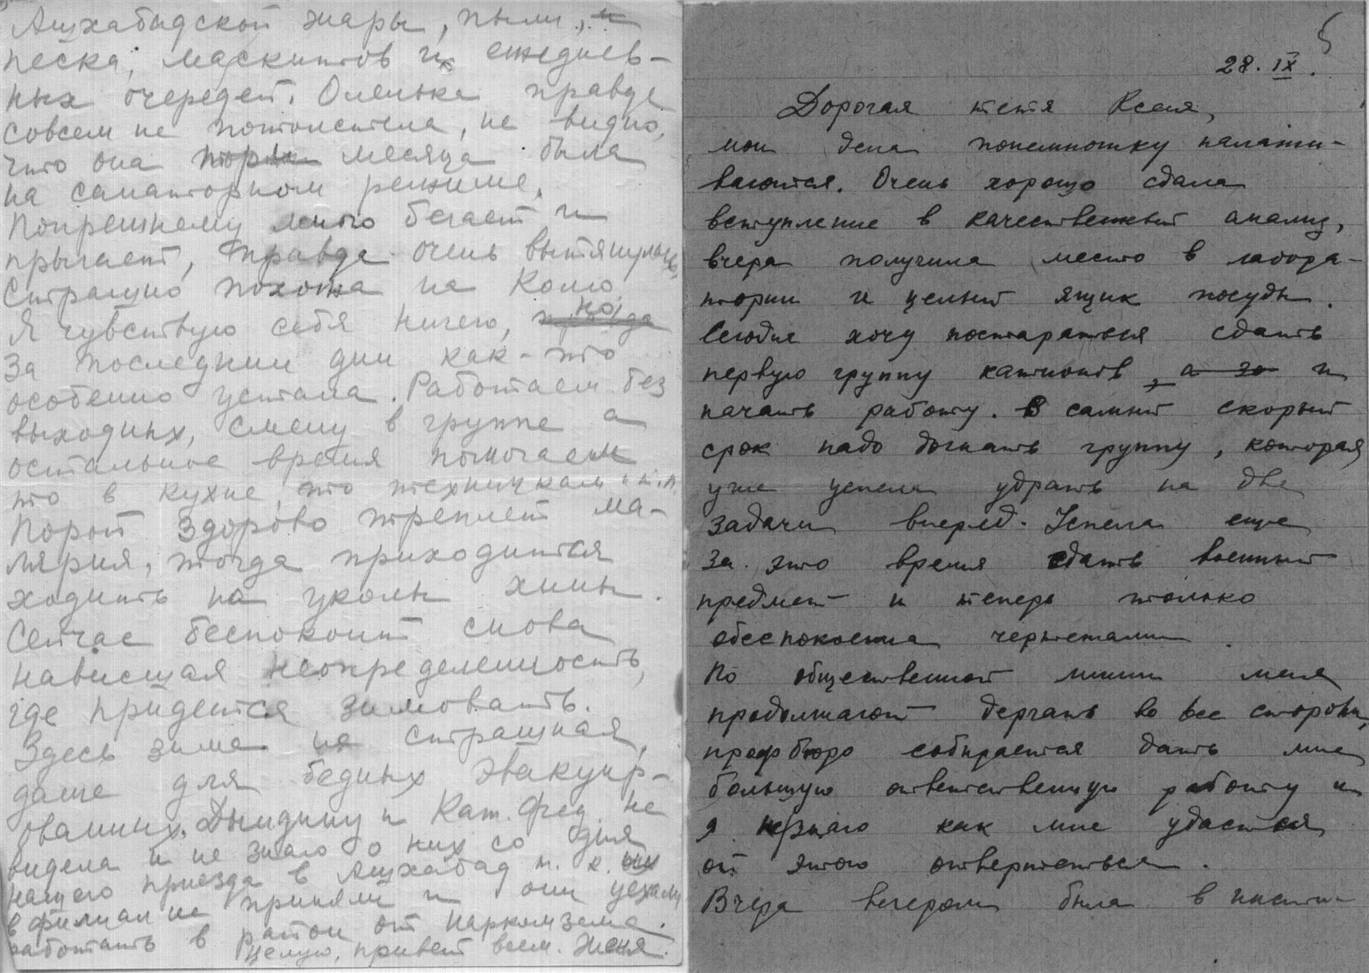 Ашхабадской жары, пыли, и
песка, москитов и ежеднев-
ных очередей. Оленька правда
совсем не потолстела, не видно,
что она месяца была
на санаторном режиме.
Попрежнему много бегает и
прыгает, правда очень вытянулась,
страшно похожа на Колю.
Я чувствую себя ничего, но
за последнии дни как-то
особенно устала. Работаем без
выходных, смену в группе а
остальное время помогаем
то в кухне, то техничкам и т.п.
Порой здорово треплет ма-
лярия, тогда приходится
ходить на уколы хины.
Сейчас беспокоит снова
нависшая неопределенность,
где придется зимовать.
Здесь зима не страшная,
даже для бедных эвакуир-
ованных. и Кат. Фед. не
видела и не знаю о них со дня
нашего приезда в Ашхабад т. к. их
в филиал не приняли и они уехали
работать в район от Наркомзема.
Целую, привет всем. Женя.
5
28. IX.
Дорогая тетя Ксеня,
мои дела понемножку налажи-
ваются. Очень хорошо сдала
вступление в качественный анализ,
вчера получила место в лабора-
тории и целый ящик посуды.
Сегодня хочу постараться сдать
первую группу катионов, а за и
начать работу. В самый скорый
срок надо догнать группу, которая
уже успела удрать на две
задачи вперед. Успела еще
за это время сдать военный
предмет и теперь только
обеспокоена черчением
По общественной линии меня
продолжают дергать во все стороны,
профбюро собирается дать мне
большую ответственную работу и
я не знаю как мне удастся
от этого отвертеться.
Вчера вечером была в инсти-